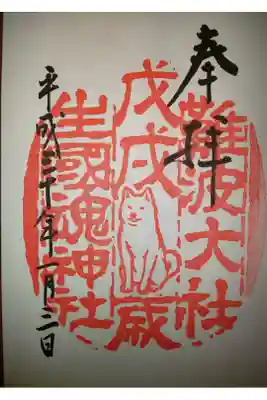 奉拝
難波大社
戊戌歳
生國魂神社
平成三十年一月二日